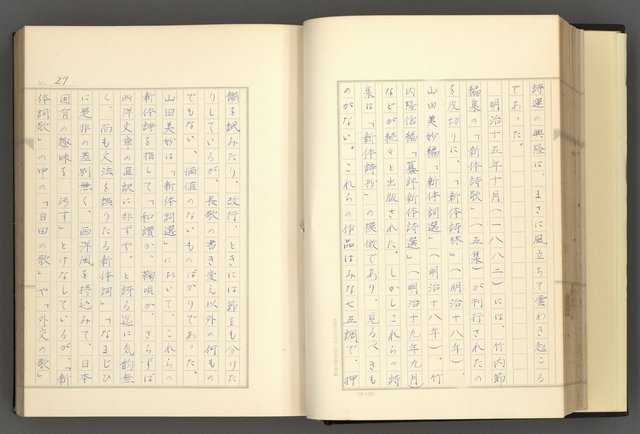 詩運の興隆は、まさに風立ちて雲わき起こる
であった。
明治十五年十月(一八八二)には、竹内節
編集の「新体詩歌」(五集)が刊行されたの
を皮切りに、「新体詩林」(明治十八年)
山田美妙編「新体詞選」(明治十八年)、竹
内隆信編「纂評新体詩選」(明治十九年九月)
などが続々と出版された。しかしこれらの詩
集は「新体詩抄」の模倣であり、見るべきも
のがない。これらの作品はみな七五調で、押
27
韻を試みたり、改行、ときには節をも分けた
りしているが、長歌の書き変え以外の何もの
でもない、価値のないものばかりであった。
山田美妙は「新体詞選」において、これらの
新体詩を指して「和讃か、鞠唄か、さらずば
西洋文章の直訳に非ずや。と誇る迄に気韵無
く、而も文法を誤りたる新体詞」「なまじひ
に是非の差別無く、西洋風を持込みて、日本
固有の趣味を汚す」とけなしているが、「新
体詞歌」の中の「自由の歌」や「外交の歌」